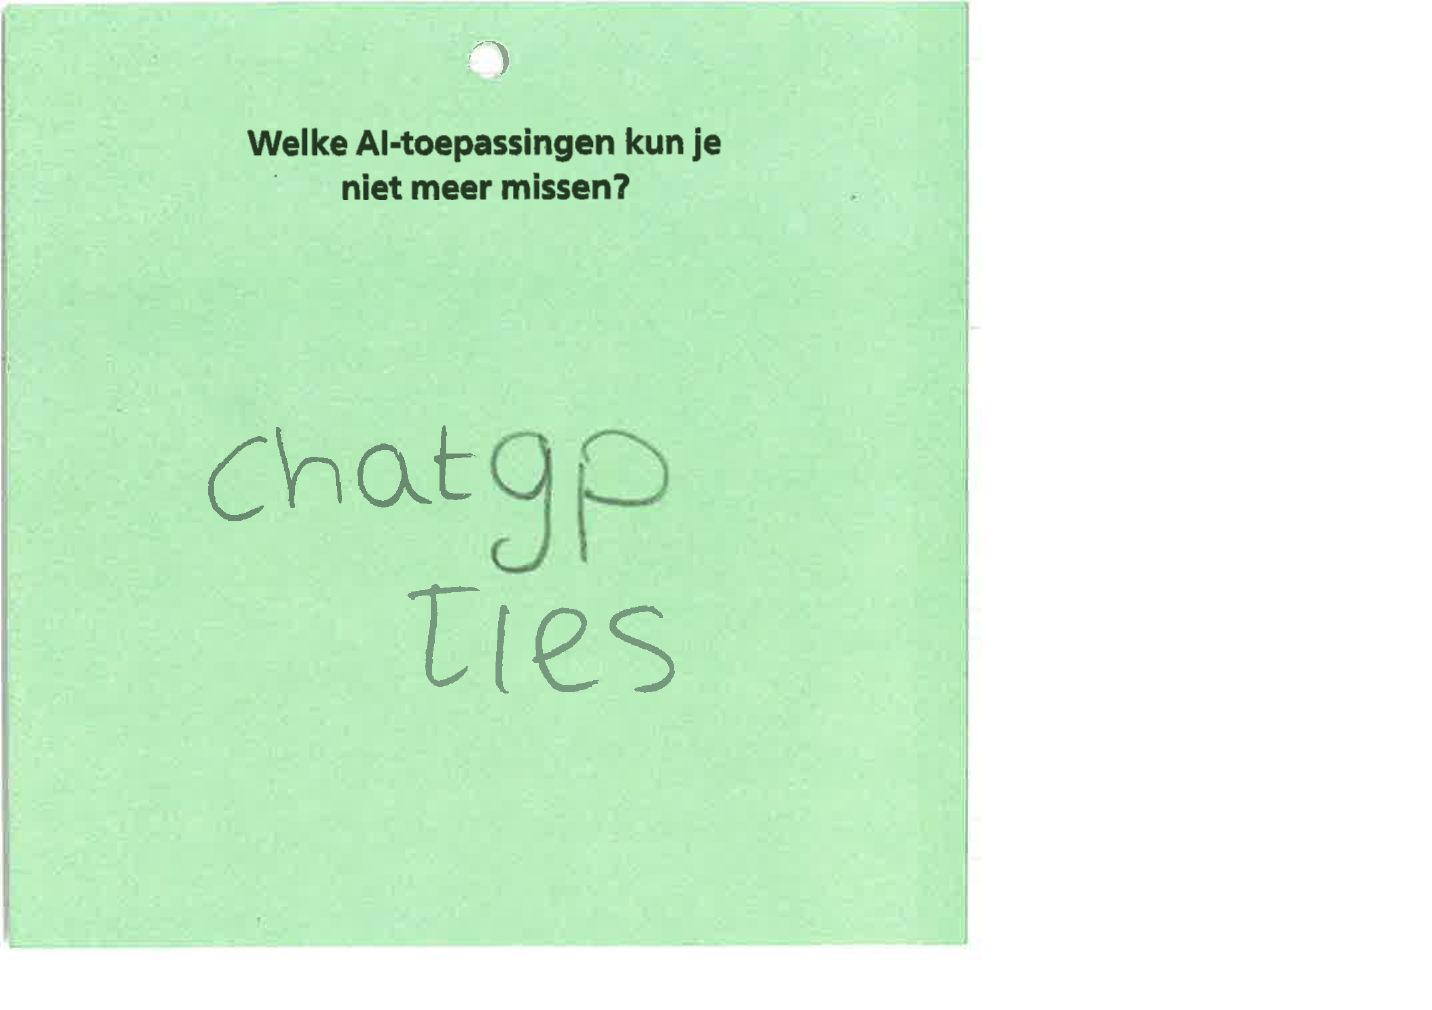 Welke AI-toepassingen kun je
niet meer missen?
chatgp
Ties